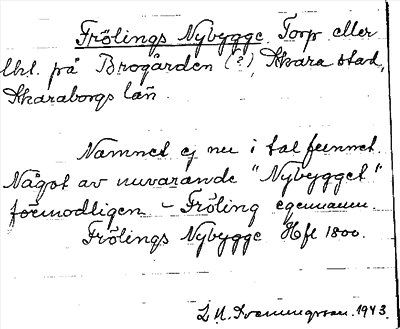 Frölings Nybygge. Torp eller
lht. på Brogården (?), Skara stad,
Skaraborgs län.
Namnet ej nu i tal funnet.
Något av nuvarande "Nybygget"
förmodligen - Fröling egennamn.
Frölings Nybygge Hfl 1800.
1943.